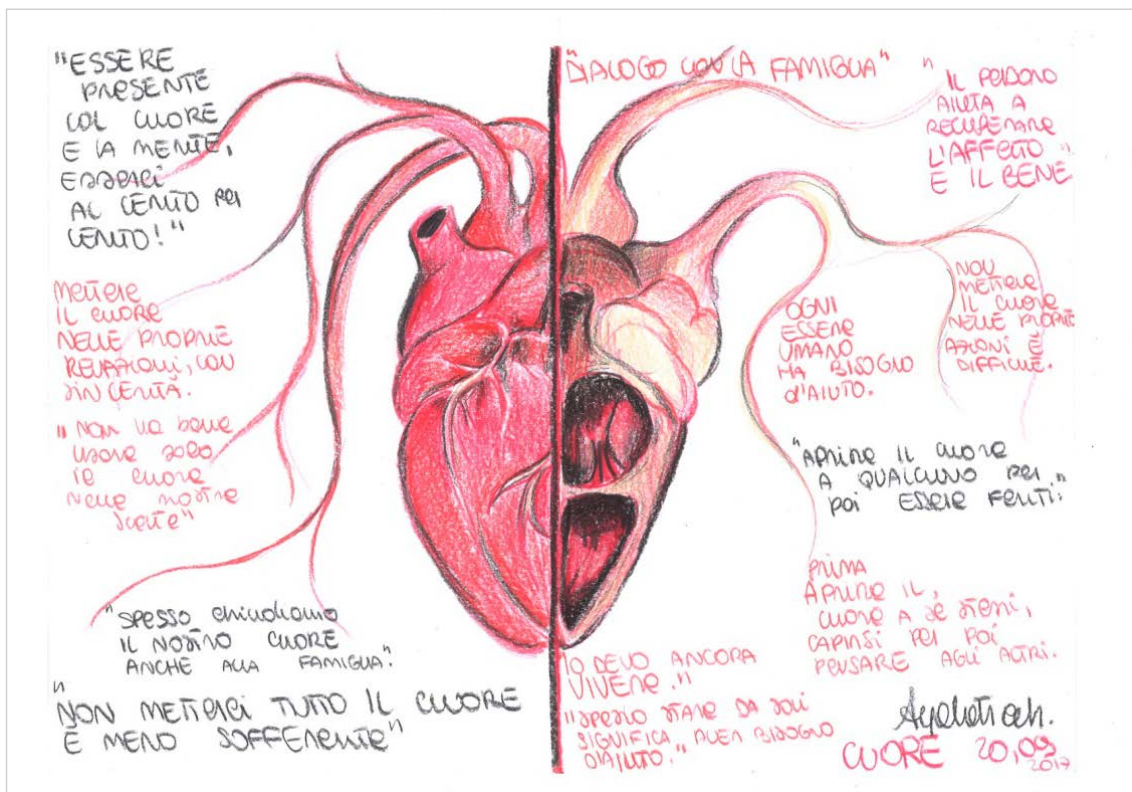 "ESSERE
PRESENTE
COL CUORE
E LA MENTE,
ESSERCI
AL CENTO PER
CENTO!"
METTERE
IL CUORE
NELLE PROPRIE
RELAZIONI, CON
SINCERITÀ.
"NON VA bene
USARE SOLO
IL CUORE
Nelle NOSTRE
Scelte"
"SPESSO chiudiamo
IL NOSTRO CUORE
ANCHE ALLA FAMIGLIA".
"NON METTERCI TUTTO IL CUORE
È MENO SOFFERENTE"
"DIALOGO CON LA FAMIGLIA"
"IL PERDONO
AIUTA A
RECUPERARE
L'AFFETTO
E IL BENE"
OGNI
ESSERE
UMANO
HA BISOGNO
d'AIUTO.
NON
METTERE
IL CUORE
NELLE PROPRIE
AZIONI È
DIFFICILE.
"APRIRE IL CUORE
A QUALCUNO PER
POI ESSERE FERITI."
PRIMA
APRIRE IL
CUORE A SE STESSI,
CAPIRSI PER POI
PENSARE AGLI ALTRI.
"IO DEVO ANCORA
VIVERE."
"SPESSO STARE DA SOLI
SIGNIFICA AVER BISOGNO
D'AIUTO."
CUORE 20,09
2017